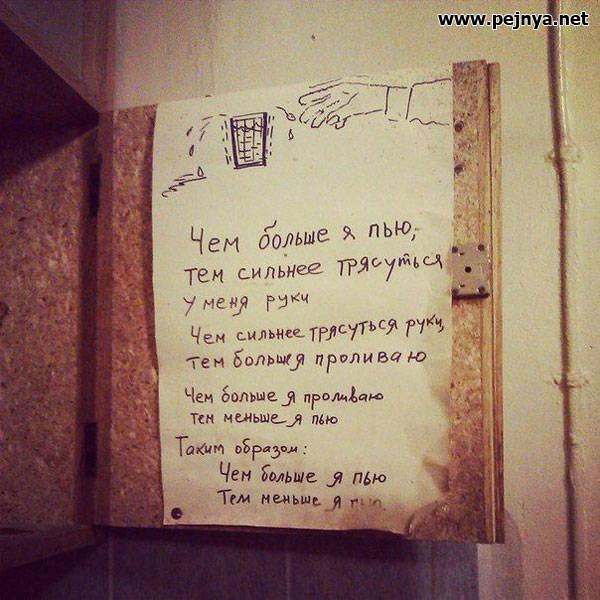 www.pejnya.net
Чем больше я пью,
тем сильнее трясуться
у меня руки
Чем сильнее трясуться руки,
тем больше я проливаю
Чем больше я проливаю
тем меньше я пью
Таким образом:
Чем больше я пью
Тем меньше я пью.